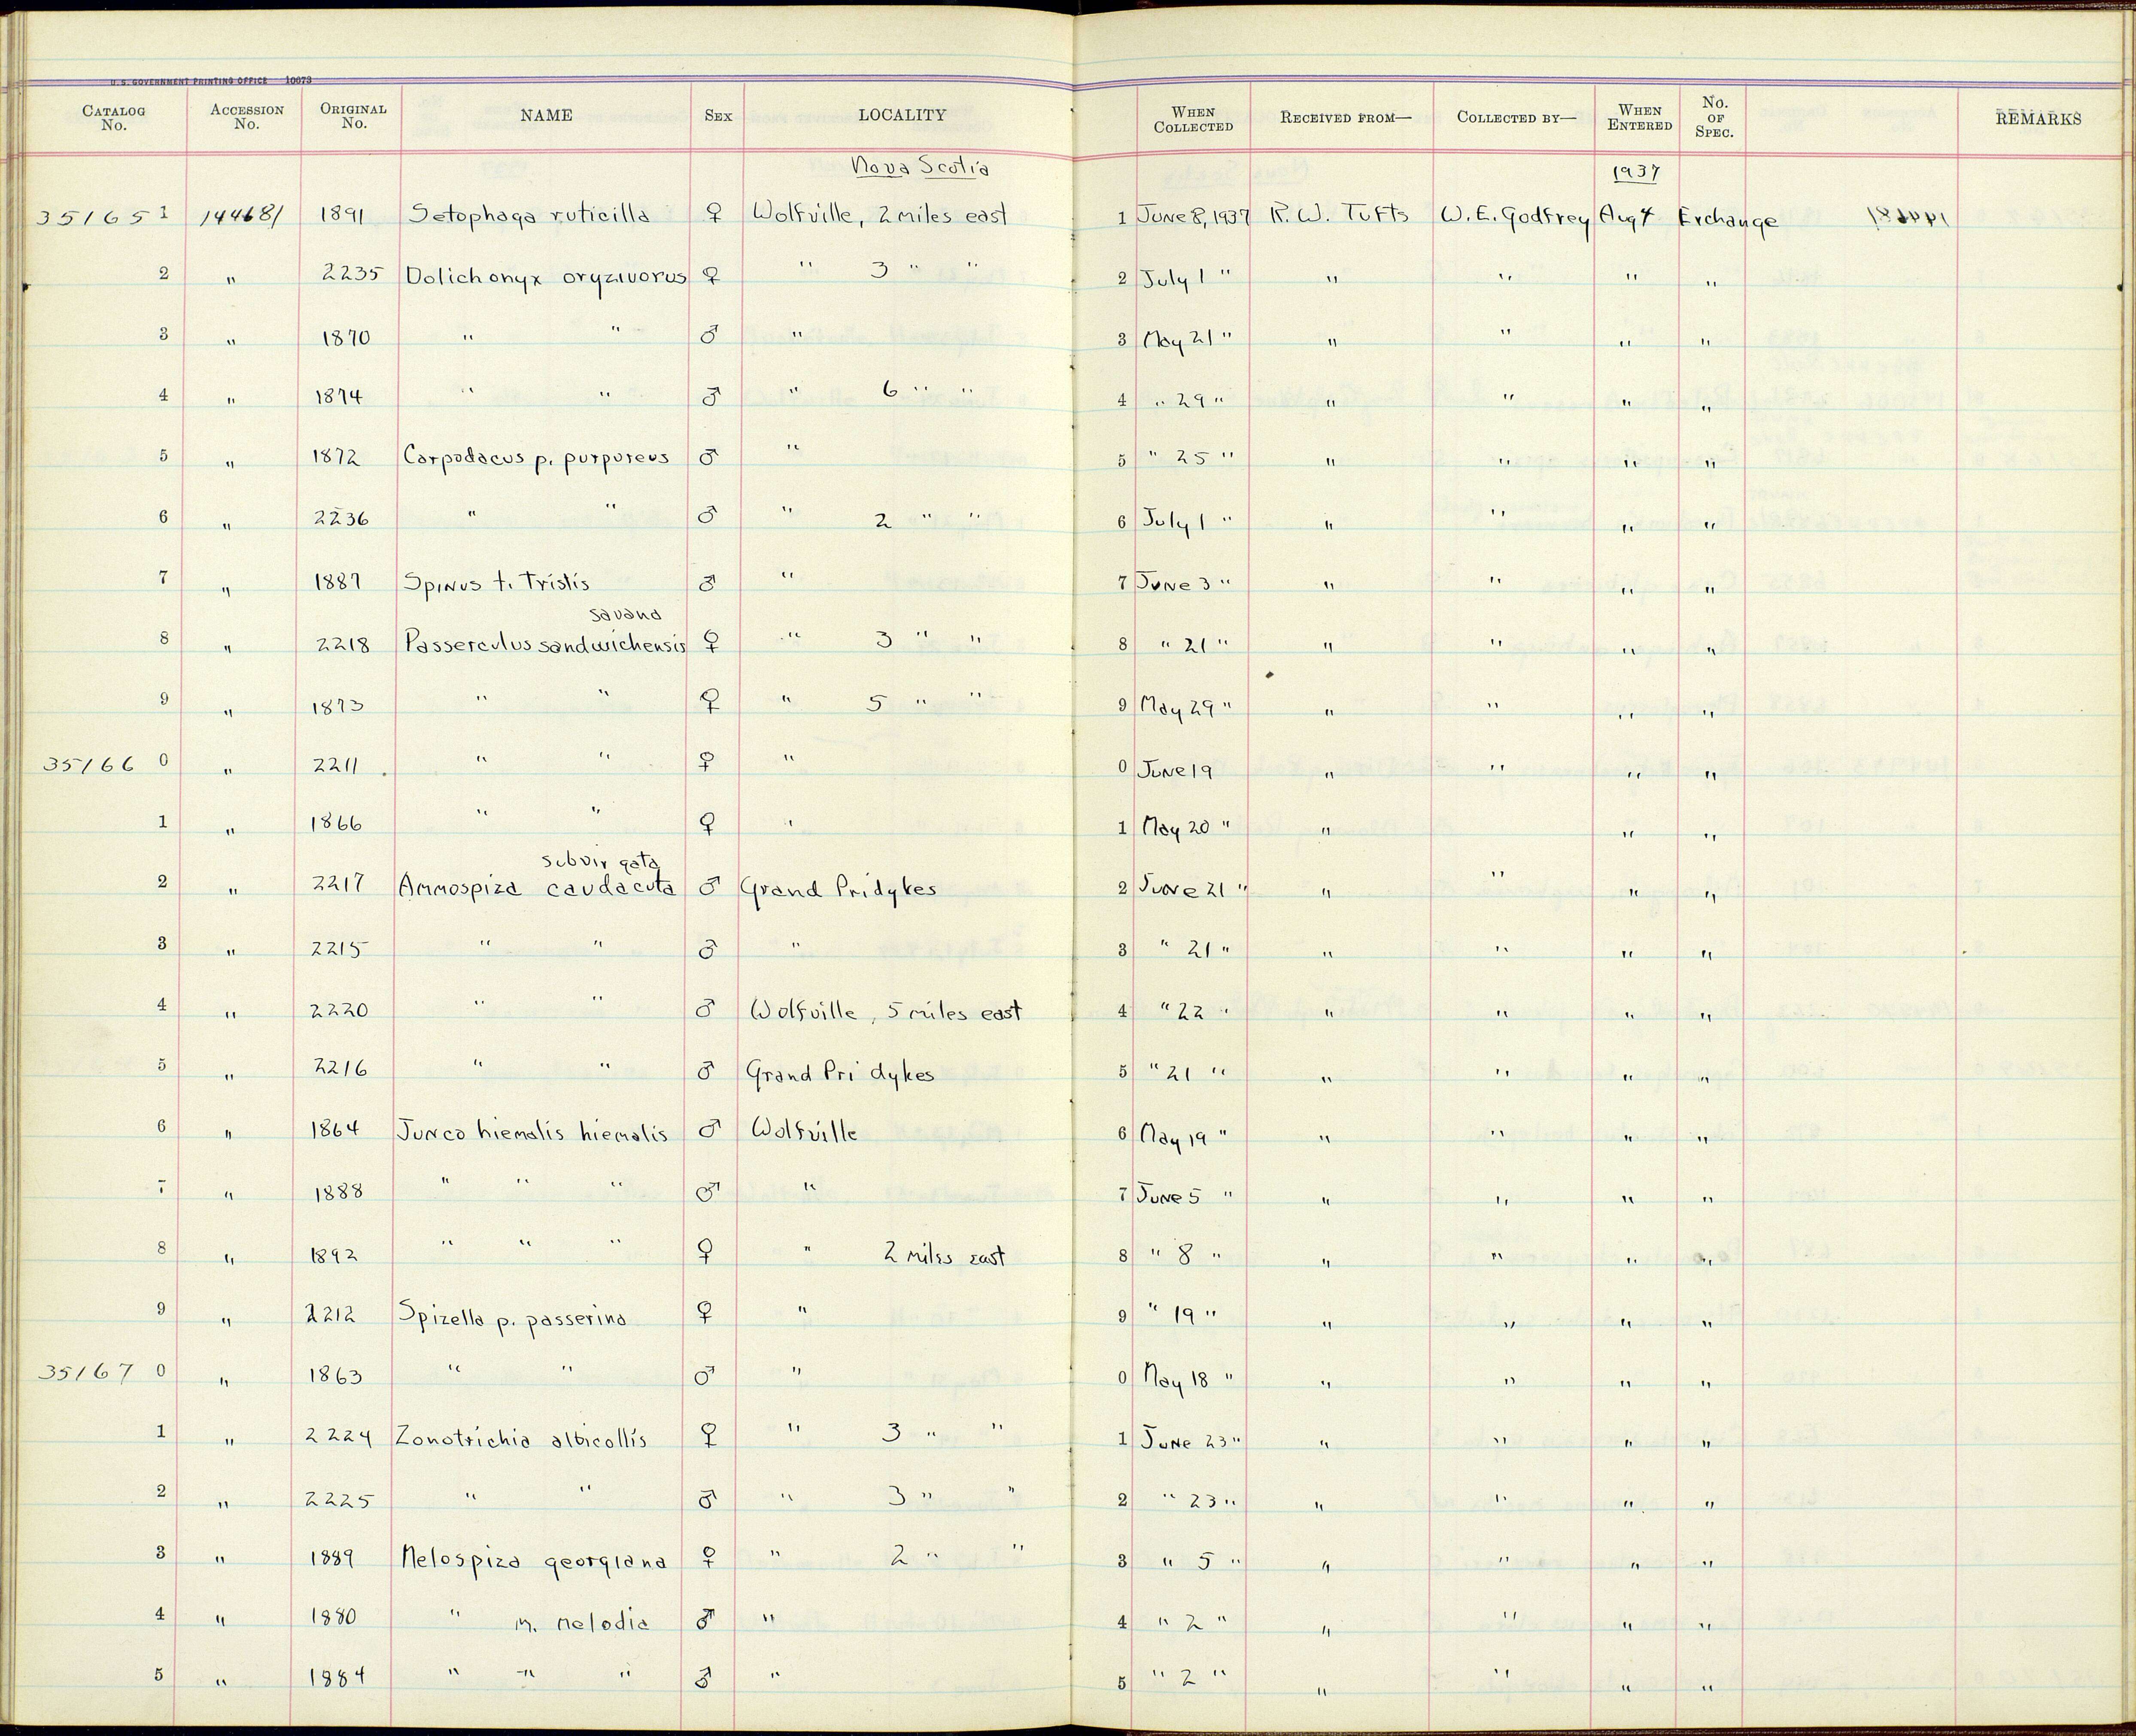 U.S. GOVERNMENT PRINTING OFFICE 10073
CATALOG No. ACCESSION No. ORIGINAL No. NAME SEX LOCALITY WHEN COLLECTED RECEIVED FROM— COLLECTED BY— WHEN ENTERED No. OF SPEC. REMARKS
Nova Scotia 1937
35165 1 144681 1891 Setophaga ruticilla ♀ Wolfville, 2 miles east 1 June 8, 1937 R. W. Tufts W. E. Godfrey Aug 4 Exchange
2 " 2235 Dolichonyx oryzivorus ♀ " 3 " " 2 July 1 " " " " "
3 " 1870 " " ♂ " 3 May 21 " " " " "
4 " 1874 " " ♂ " 6 " " 4 " 29 " " " " "
5 " 1872 Carpodacus p. purpureus ♂ " 5 " 25 " " " " "
6 " 2236 " " ♂ " 2 " " 6 July 1 " " " " "
7 " 1887 Spinus t. tristis ♂ " 7 June 3 " " " " "
savana
8 " 2218 Passerculus sandwichensis ♀ " 3 " " 8 " 21 " " " " "
9 " 1873 " " ♀ " 5 " " 9 May 29 " " " " "
35166 0 " 2211 " " ♀ " 0 June 19 " " " "
1 " 1866 " " ♀ " 1 May 20 " " " "
subvirgata
2 " 2217 Ammospiza caudacuta ♂ Grand Pri dykes 2 June 21 " " " " "
3 " 2215 " " ♂ " 3 " 21 " " " " "
4 " 2220 " " ♂ Wolfville, 5 miles east 4 " 22 " " " " "
5 " 2216 " " ♂ Grand Pri dykes 5 " 21 " " " " "
6 " 1864 Junco hiemalis hiemalis ♂ Wolfville 6 May 19 " " " " "
7 " 1888 " " " ♂ " 7 June 5 " " " " "
8 " 1892 " " " ♀ " 2 miles east 8 " 8 " " " " "
9 " 2212 Spizella p. passerina ♀ " 9 " 19 " " " " "
35167 0 " 1863 " " ♂ " 0 May 18 " " " " "
1 " 2224 Zonotrichia albicollis ♀ " 3 " " 1 June 23 " " " " "
2 " 2225 " " ♂ " 3 " " 2 " 23 " " " " "
3 " 1889 Melospiza georgiana ♀ " 2 " " 3 " 5 " " " " "
4 " 1880 " m. melodia ♂ " 4 " 2 " " " " "
5 " 1884 " " " ♂ " 5 " 2 " " " " "